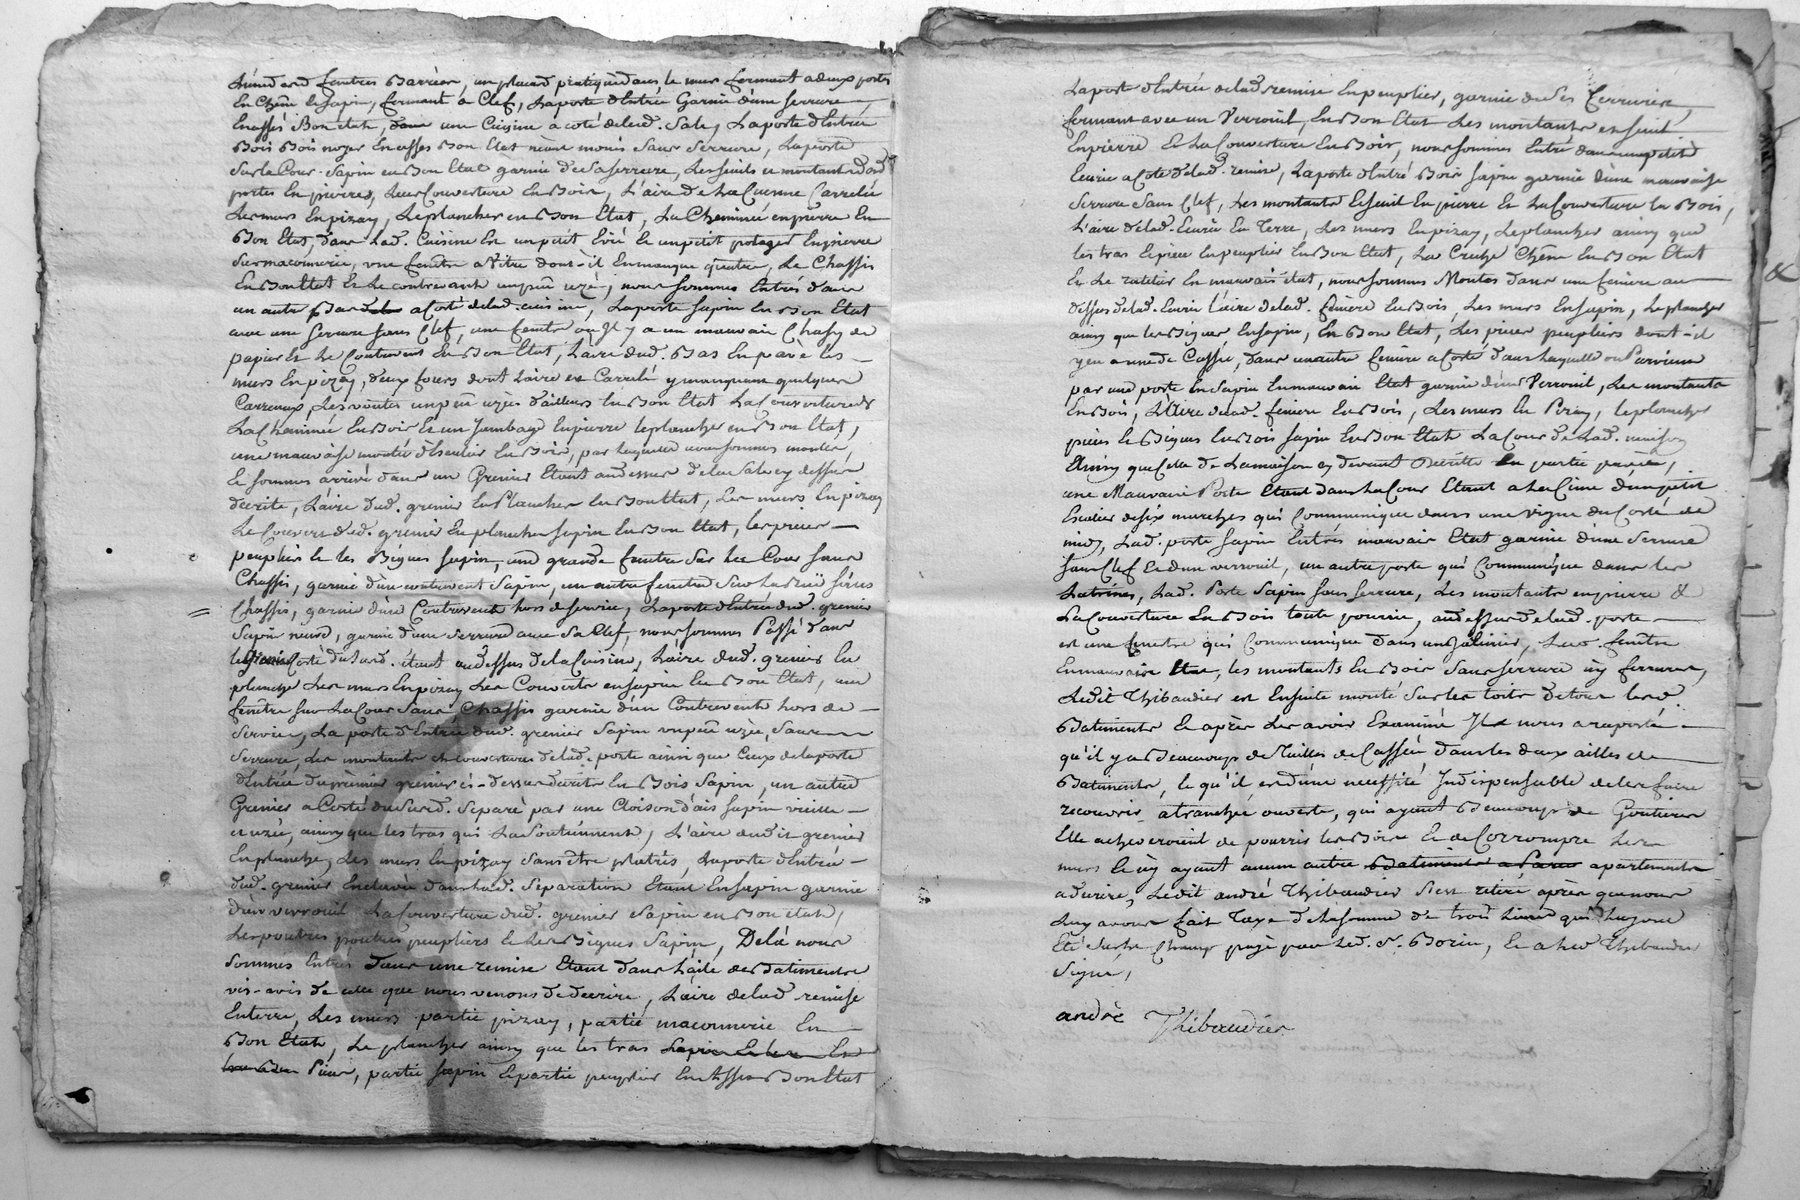 fenetres Barrées, un placard pratiqué dans le mur fermant a deux portes
En Chêne & Sapin, fermant a Clef, Laporte d'Entrée Garnie d'une serrure
En assés Bon état, une Cuisine a coté delad. Sale, Laporte d'Entrée
Bois noyer En assés Bon Etat neuve mais Sans Serrure, Laporte
Sur la Cour Sapin en Bon Etat garnie de Sa serrure, Les seuils et montant desd.
portes En pierres, Leur Couverture En Bois, L'aire de La Cuisine Carrelée
Les murs En pizay, Le plancher en Bon Etat, La Cheminée en pierre En
Bon Etat, dans Lad. Cuisine Est un petit Evié & un petit potager En pierre
Sur maconnerie, une fenêtre a Vitre dont-il En manque quatre, Le Chassis
En Bon Etat Et Le contrevent un peu uzé, nous sommes Entrés dans
un autre Bas a Coté delad. cuisine, Laporte Sapin En Bon Etat
avec une Serrure Sans Clef, une fenêtre ou Il y a un mauvais Chassy de
papier Et Le Contrevent En Bon Etat, L'aire dud. Bas En pavé les
murs En pizay, deux fours dont L'aire est Carrelé y manquant quelques
Carreaux, Les voutes un peu uzées d'ailleurs En Bon Etat La Couverture de
La Cheminée En Bois Et un Jambage En pierre le plancher en Bon Etat,
une mauvaise montée d'Escalier En Bois, par Laquelle nous sommes montés,
& sommes arrivé dans un Grenier Etant au dessus de la Sale cy dessus
decrite, L'aire dud. grenier En Plancher En Bon Etat, Les murs En pizay
Le Couvert dud. grenier En plancher Sapin En Bon Etat, les pieces
peuplier & les Bigues Sapin, une grande fenetre Sur La Cour Sans
Chassis, garnie d'un contrevent Sapin, un autre fenetre Sur La Rue Sans
Chassis, garnie d'un Contrevent hors de service, Laporte d'Entrée dud. grenier
Sapin neuve, garnie d'une serrure avec Sa Clef, nous sommes Passé dans
le Grenier a Coté du Susd. étant au dessus de la Cuisine, L'aire dud. grenier En
planche Les murs En pizay Les Couverts en Sapin En Bon Etat, une
fenêtre sur La Cour Sans Chassis garnie d'un Contrevent hors de
Service, La porte d'Entrée dud. grenier Sapin un peu uzée, Sans
Serrure, Les montants et couverture delad. porte ainsi que Ceux de laporte
d'Entrée du premier grenier ci-dessus décrit En Bois Sapin, un autre
Grenier a Costé du Susd. Separé par une Cloison d'ais Sapin vieille
et uzée, ainsy que les tras qui La Soutiennent, L'aire dudit grenier
En planche, Les murs En pizay Sans être platrés, Laporte d'Entrée
dud. grenier Enclavée dans Lad. Separation Etant En Sapin garnie
d'un verrouil La Couverture dud. grenier Sapin en Bon état,
Les poutres peupliers & Les Bigues Sapin, De Là nous
Sommes Entrés Dans une remise Etant dans L'aile des Batiments
vis-avis de celle que nous venons de decrire, L'aire delad. remise
En terre, Les murs partie pizay, partie maconnerie En
Bon Etat, Le plancher ainsy que les tras
partie Sapin & partie peuplier En Assés Bon Etat
Laporte d'Entrée delad. remise En peuplier, garnie de Ses ferrures
fermant avec un Verrouil, En Bon Etat Les montants et Seuil
En pierre Et La Couverture En Bois, nous sommes Entré dans une petite
Ecurie a Coté delad. remise, Laporte d'Entré Bois Sapin garnie d'une mauvaise
Serrure Sans Clef, Les montants & Seuil En pierre Et La Couverture En Bois,
L'aire delad. Ecurie En Terre, Les murs En pizay, Le plancher ainsy que
les tras & piece En peuplier En Bon Etat, La Creche Chêne En Bon Etat
Et Le ratelier En mauvais état, nous sommes Montés dans une feniere au
dessus delad. Ecurie L'aire delad. feniere En Bois, Les murs En Sapin, Le plancher
ainsy que les Bigues En Sapin, En Bon Etat, Les pieces peupliers dont-il
y en a une de Cassée, dans une autre feniere a Costé dans Laquelle on Parvient
par une porte En Sapin En mauvais Etat garnie d'un Verrouil, Les montants
En Bois, L'Aire delad. feniere En Bois, Les murs En Pizay, le plancher
pieces & Bigues En Bois Sapin En Bon Etat La Cour de Lad. maison
Ainsy que Celle de La maison cy devant Décritte en partie pavée,
une Mauvaise Porte dans La Cour Etant a La Cime d'un petit
Escalier de six marches qui Communique dans une vigne du Coté de
midy, Lad. porte Sapin En très mauvais Etat garnie d'une Serrure
Sans Clef & d'un verrouil, un autre porte qui Communique dans les
Latrines, Lad. Porte Sapin Sans serrure, Les montants en pierre &
La Couverture En Bois toute pourrie, au dessus de lad. porte
est une fenetre qui Communique Dans un Galinier, Lad. fenêtre
En mauvais Etat, les montants En Bois Sans serrure ny ferrures,
Ledit Thibaudier est Ensuite monté Sur les toits De tous lesd.
Batiments & après Les avoir Examiné Il nous a raporté
qu'il y a Beaucoup de Tuilles de Cassées dans les deux ailles de
Batiments, & qu'il est d'une necessité Indispensable de les faire
recouvrir a tranchée ouverte, qui ayant Beaucoup de Goutieres
Elle acheveroient de pourrir les Bois & de Corrompre Les
murs & ny ayant aucun autre Batiments apartements
a decrire, Ledit andré Thibaudier S'est retiré après que nous
Luy avons fait Taxe de La somme de trois Livres qui Luy ont
Eté Sur le Champ payé par Led. Sr. Borin, & a Led. Thibaudier
Signé,
andré Thibaudier